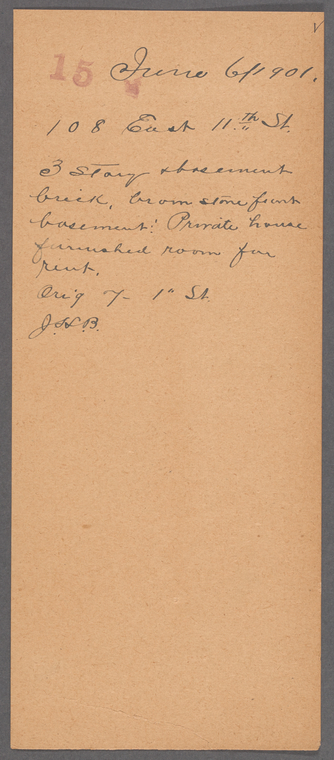 ✓
15 June 6/1901.
108 East 11th St.
3 Story & basement
brick, brown stone front
basement. Private house
furnished room for
rent.
Orig 7 - 1" St.
J.H.B.